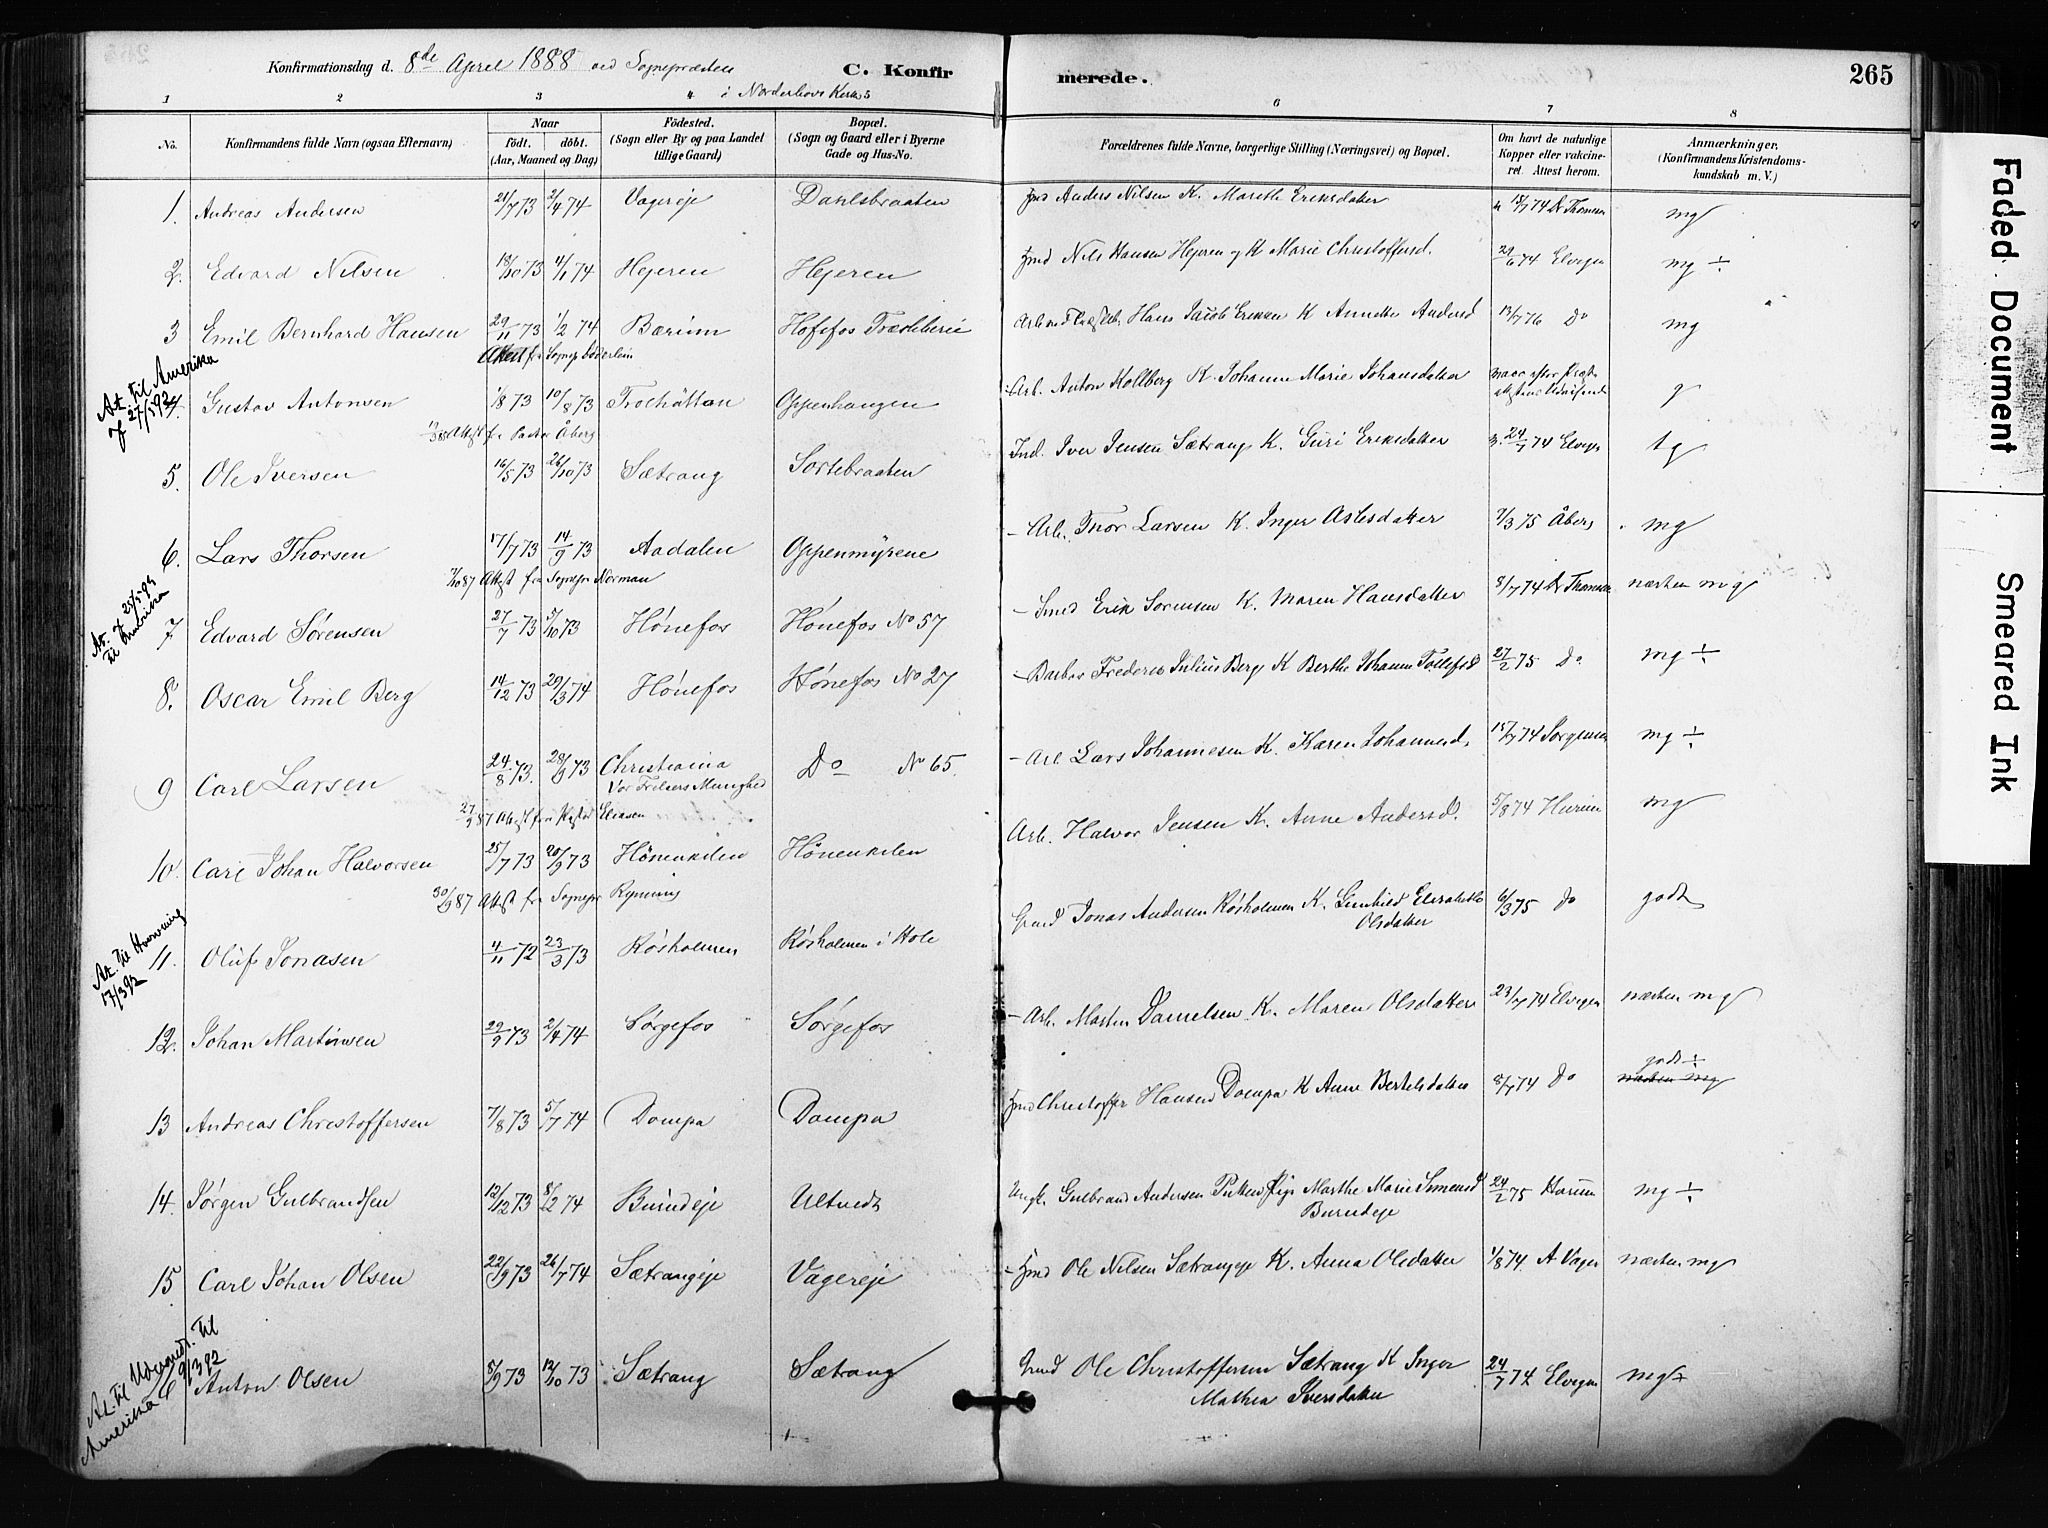 Konfirmationsdag d. 8de April 1888 ved Sognepræsten C. Konfirmerede. 265
i Norderhovs Kirke
1 2 3 4 5 6 7 8
No. Konfirmandens fulde Navn (ogsaa Efternavn) Naar födt. döbt. (Aar, Maaned og Dag) Födested. (Sogn eller By og paa Landet tillige Gaard) Bopæl. (Sogn og Gaard eller i Byerne Gade og Hus-No. Forældrenes fulde Navne, borgerlige Stilling (Næringsvei) og Bopæl. Om havt de naturlige Kopper eller vakcineret. Attest herom. Anmærkninger. (Konfirmandens Kristendomskundskab m. V.)
1. Andreas Andersen 21/7 73 2/4 74 Vagereje Dahlsbraaten Hmd Anders Nilsen K. Marethe Eriksdatter 18/7 74 Dr Thomsen mg
2. Edvard Nilsen 18/10 73 4/1 74 Hejeren Hejeren Hmd Nils Hansen Hejeren og K Marie Christoffersd. 29/6 74 Elvegen mg ÷
3 Emil Bernhard Hansen 29/11 73 1/2 74 Bærum Hofsfos Træsliberie Hans Jacob Eriksen K Annette Andersd 13/7 76 Do mg
Attest fra Sognep Søderlein
At. til Amerika 27/5 92
4. Gustav Antonsen 1/8 73 10/8 73 Trolhättan Oppenhaugen Arb. Anton Kollberg K. Johanne Marie Johansdatter vacc efter g
13/3 85 Attest fra Pastor Åberg
5. Ole Iversen 16/5 73 26/10 73 Sætrang Sortebraaten Ind. Iver Jensen Sætrang K. Guri Eriksdatter 24/7 74 Elvegen tg
6. Lars Thorsen 17/7 73 14/9 73 Aadalen Oppenmyrene Arb. Thor Larsen K. Inger Aslesdatter 7/3 75 Åberg mg
7/10 87 Attest fra Sognepr Norman
At. 25/5 93 til Amerika
7 Edvard Sørensen 27/7 73 5/10 73 Hønefos Hønefos No 57 Smed Erik Sørensen K. Maren Hansdatter 8/7 74 Dr Thomsen næsten mg
8. Oscar Emil Berg 14/12 73 29/3 74 Hønefos Hønefos No 27 Barber Frederik Julius Berg K Berthe Johanne Tollefsd 27/2 75 Do mg ÷
9 Carl Larsen 24/8 73. 28/9 73 Christiania Vor Frelsers Menighed Do No 65. Arb Lars Johannesen K. Karen Johannesd. 15/7 74 Sørgensen mg ÷
87 Attest fra Pastor Eliasen
10. Carl Johan Halvorsen 25/7 73 20/9 73 Hönenkilen Hönenkilen Arb. Halvor Jensen K. Anne Andersd. 5/8 74 Hurum mg
30/9 87 Attest fra Sognepr Rynning
At. til 17/3 92
11. Oluf Jonasen 4/11 72 23/3 73 Røsholmen Røsholmen i Hole Gmd Jonas Andersen Røsholmen K. Gunhild Elisabeth Olsdatter 6/3 75 Do godt
12. Johan Martinsen 29/9 73 2/4 74 Sørgefos Sørgefos Arb. Marten Danielsen K. Maren Olsdatter 23/7 74 Elvegen næsten mg
13 Andreas Christoffersen 7/8 73 5/7 74 Dompa Dompa Hmd Christoffer Hansen Dompa K Anne Bertelsdatter 8/7 74 Do godt ÷ næsten mg
14. Jørgen Gulbrandsen 12/12 73 8/2 74 Burudeje Ultvedt Ungk. Gulbrand Andersen Putten Pige Marthe Marie Simensd Burudeje 24/2 75 Harum mg ÷
15 Carl Johan Olsen 22/9 73 26/7 74 Sætrangeje Vagereje Hmd Ole Nilsen Sætrangeje K. Anna Olsdatter 1/8 74 A Vager næsten mg
At. til Udvandr. til Amerika 9/3 92
Anton Olsen 5/9 73 12/10 73 Sætrang Sætrang Gmd Ole Christoffersen Sætrang K Inger Mathea Iversdatter 24/7 74 Elvegen mg
Faded Document
Smeared Ink